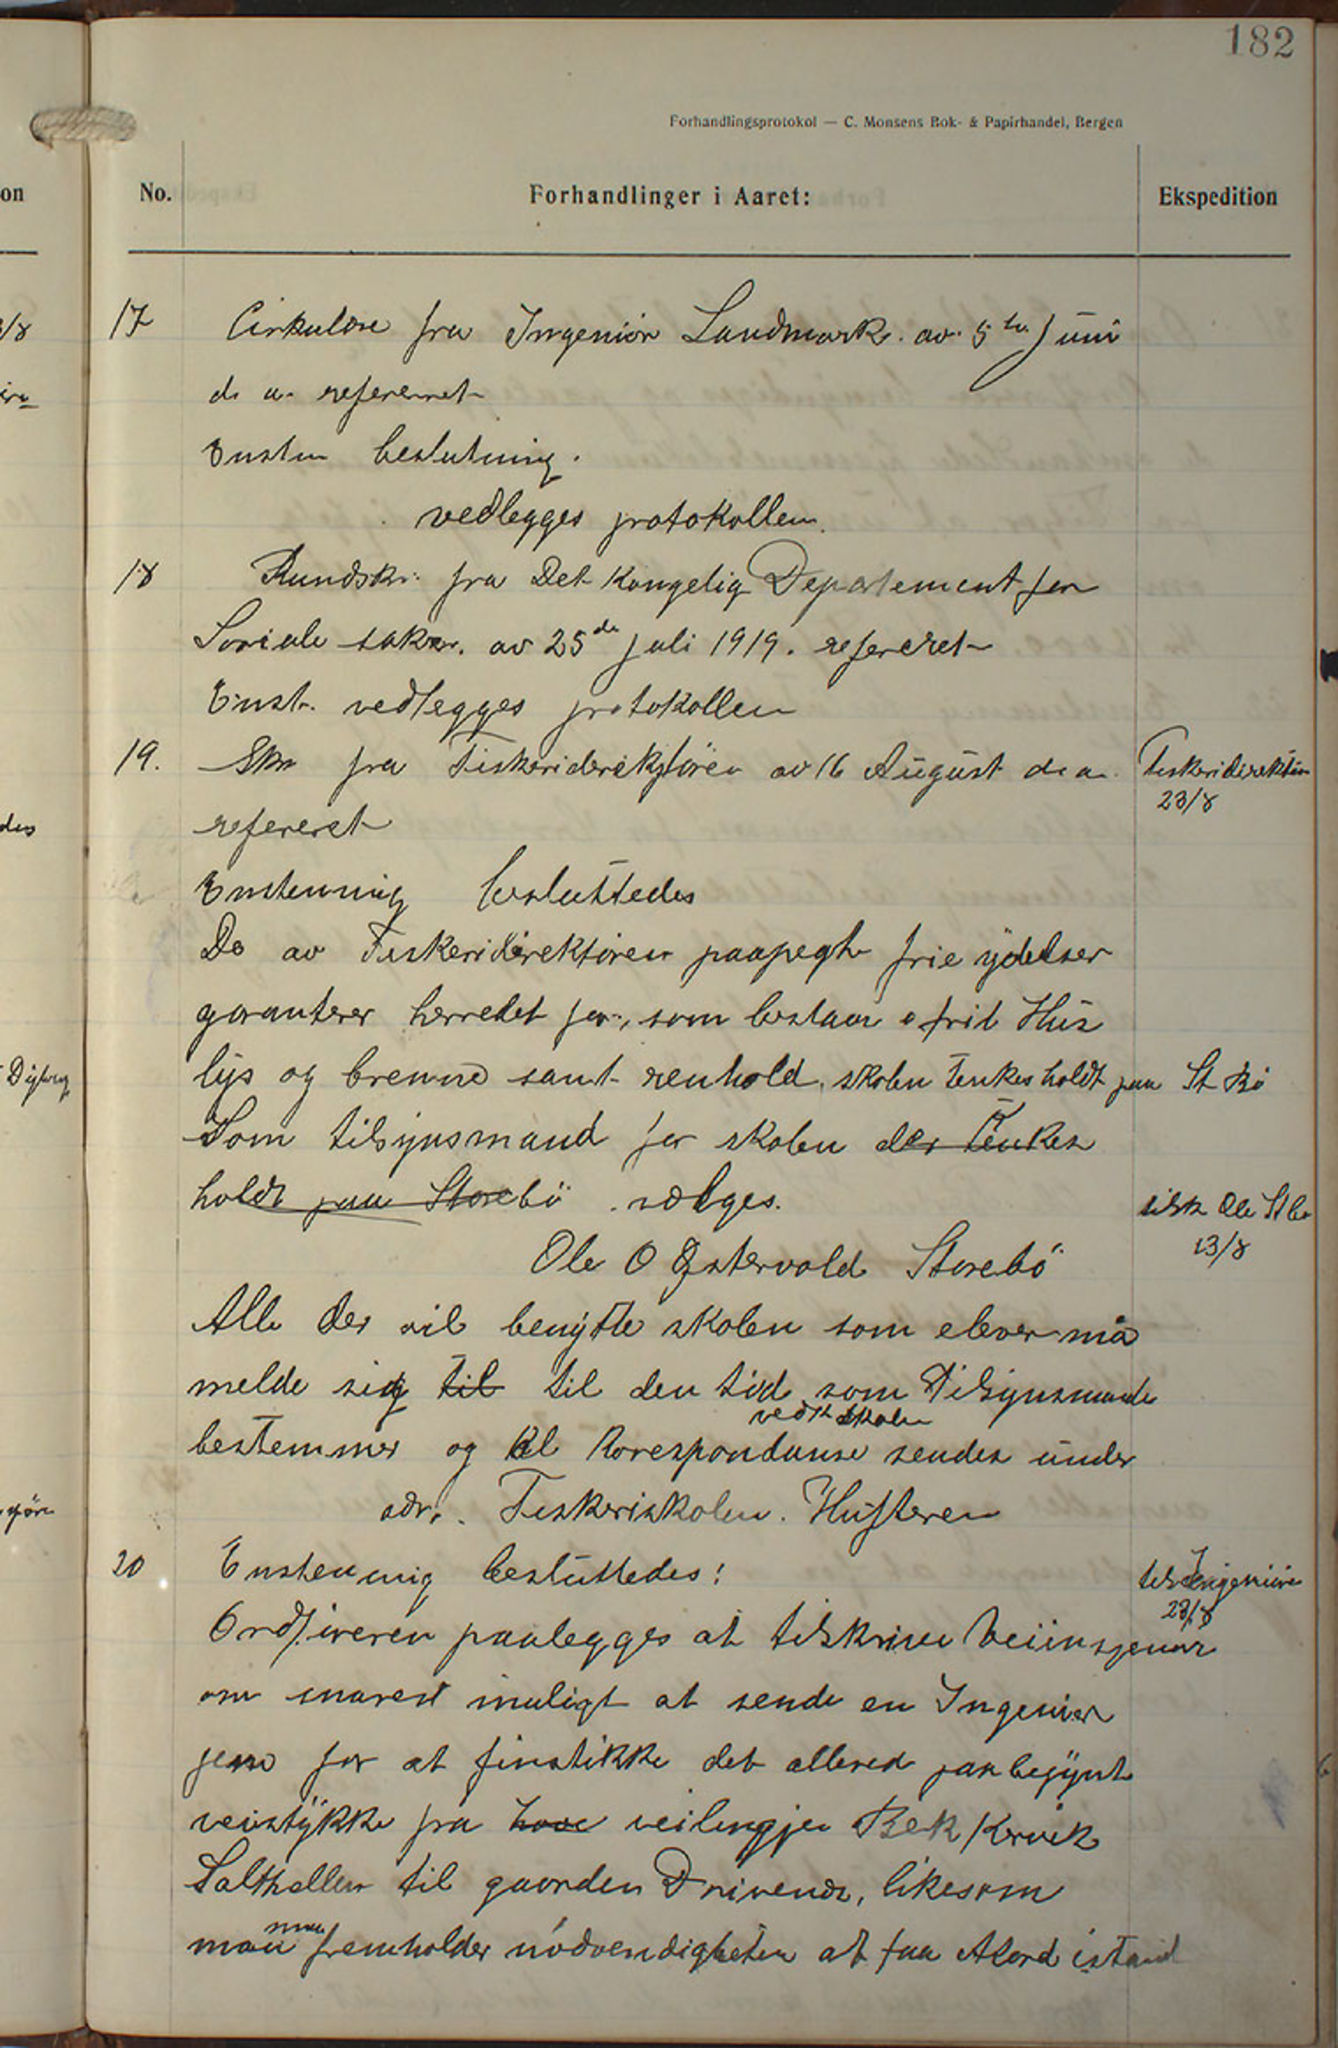 182
Forhandlingsprotokol — C. Monsens Bok- & Papirhandel, Bergen
No.
Forhandlinger i Aaret:
Ekspedition
17 Cirkulære fra Ingeniør Landmark. av. 5te Juni
d. a. refereret
Enstem beslutning.
vedlegges protokollen.
18 Rundskr. fra Det Kongelig Departement for
Sociale saker. av 25de juli 1919. refereret
Enst. vedlegges protokollen
19. Skr fra Fiskeriderektøren av 16 August d. a. Fiskeridirektøren
23/8
refereret
Enstemmig besluttedes
De av Fiskeridirektøren paapegte frie ydelser
garanterer herredet for, som bestaar frit Hus
lys og brenne samt renhold. skolen tenkes holdt paa St Bø
Som tilsynsmand for skolen der tenkes
holdt paa Storebö vælges. tilsk Ole St bø
23/8
Ole O Østervold Storebö
Alle der vil benytte skolen som elever må
melde sig til til den tid som Tilsynsmande
vedk skolen
bestemmer og al korespondanse sendes under
adr. Fiskeriskolen. Hufteren
20 Enstemmig besluttedes: tilsk Ingeniøre
23/8
Ordføreren paalegges at tilskrive Veiinsjenør
om snarest muligt at sende en Ingeniør
for at finstikke det allered paabegynt
veistykke fra veilengjen Bekkervik
Salthellen til gaarden Drivenes, likesom
man fremholder nödvendigheten at faa Alord istand